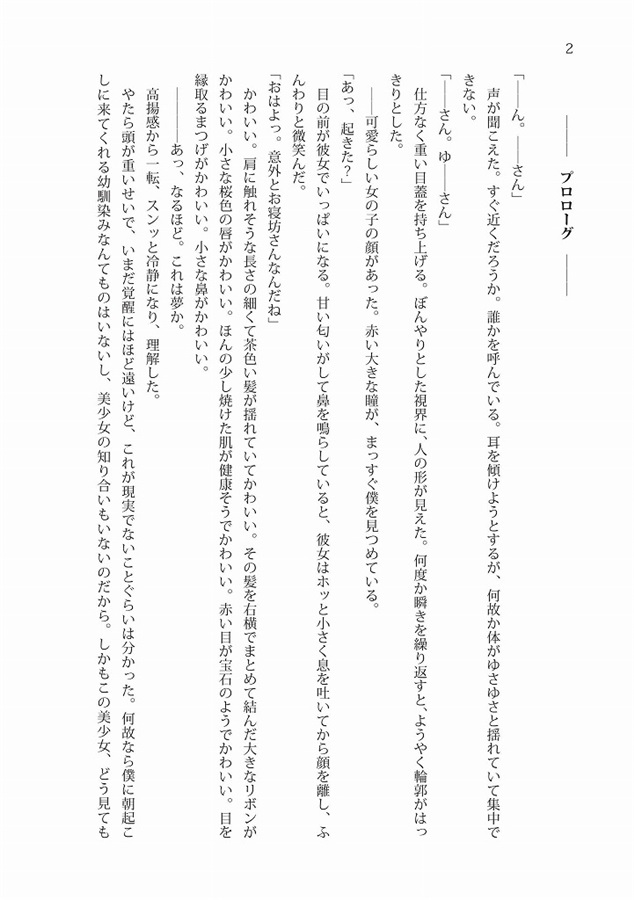 2
――― プロローグ ―――
「――ん。――さん」
声が聞こえた。すぐ近くだろうか。誰かを呼んでいる。耳を傾けようとするが、何故か体がゆさゆさと揺れていて集中で
きない。
「――さん。ゆ――さん」
仕方なく重い目蓋を持ち上げる。ぼんやりとした視界に、人の形が見えた。何度か瞬きを繰り返すと、ようやく輪郭がはっ
きりとした。
――可愛らしい女の子の顔があった。赤い大きな瞳が、まっすぐ僕を見つめている。
「あっ、起きた?」
目の前が彼女でいっぱいになる。甘い匂いがして鼻を鳴らしていると、彼女はホッと小さく息を吐いてから顔を離し、ふ
んわりと微笑んだ。
「おはよっ。意外とお寝坊さんなんだね」
かわいい。肩に触れそうな長さの細くて茶色い髪が揺れていてかわいい。その髪を右横でまとめて結んだ大きなリボンが
かわいい。小さな桜色の唇がかわいい。ほんの少し焼けた肌が健康そうでかわいい。赤い目が宝石のようでかわいい。目を
縁取るまつげがかわいい。小さな鼻がかわいい。
――――あっ、なるほど。これは夢か。
高揚感から一転、スンッと冷静になり、理解した。
やたら頭が重いせいで、いまだ覚醒にはほど遠いけど、これが現実でないことぐらいは分かった。何故なら僕に朝起こ
しに来てくれる幼馴染みなんてものはいないし、美少女の知り合いもいないのだから。しかもこの美少女、どう見ても